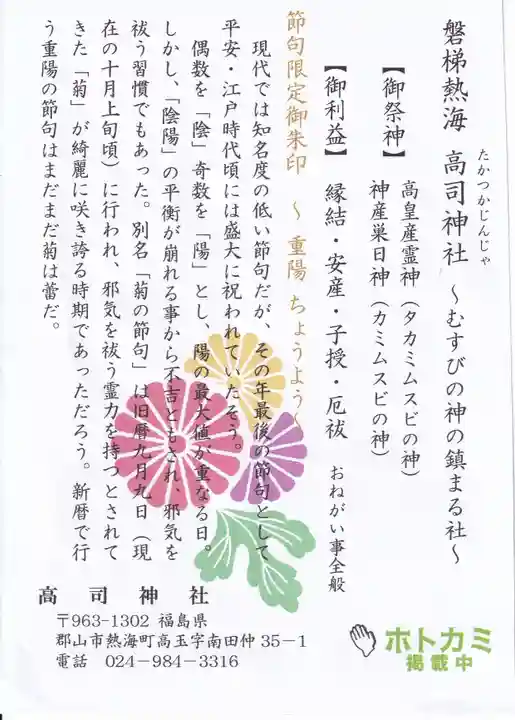 磐梯熱海 高司神社 ～むすびの神の鎮まる社～
たかつかじんじゃ
【御祭神】 高皇産霊神（タカミムスビの神）
神産巣日神（カミムスビの神）
【御利益】 縁結・安産・子授・厄祓 おねがい事全般
節句限定御朱印 ～ 重陽 ちょうよう～
現代では知名度の低い節句だが、その年最後の節句として
平安・江戸時代頃には盛大に祝われていたそう。
偶数を「陰」奇数を「陽」とし、陽の最大値が重なる日。
しかし、「陰陽」の平衡が崩れる事から不吉ともされ、邪気を
祓う習慣でもあった。別名「菊の節句」は旧暦九月九日（現
在の十月上旬頃）に行われ、邪気を祓う霊力を持つとされて
きた「菊」が綺麗に咲き誇る時期であっただろう。新暦で行
う重陽の節句はまだまだ菊は蕾だ。
高司神社
〒963-1302 福島県
郡山市熱海町高玉字南田仲 35－1
電話 024-984-3316
ホトカミ
掲載中